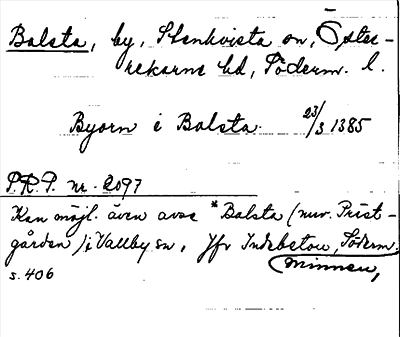 Balsta, by, Stenkvista sn, Öster-
rekarne hd, Söderm. l.
Byorn i Balsta. 23/3 1385
P.R.P. nr. 2097
Kan möjl. även avse *Balsta (nuv. Präst-
gården) i Vallby sn, Jfr Indebetou, Söderm.
minnen,
s. 406